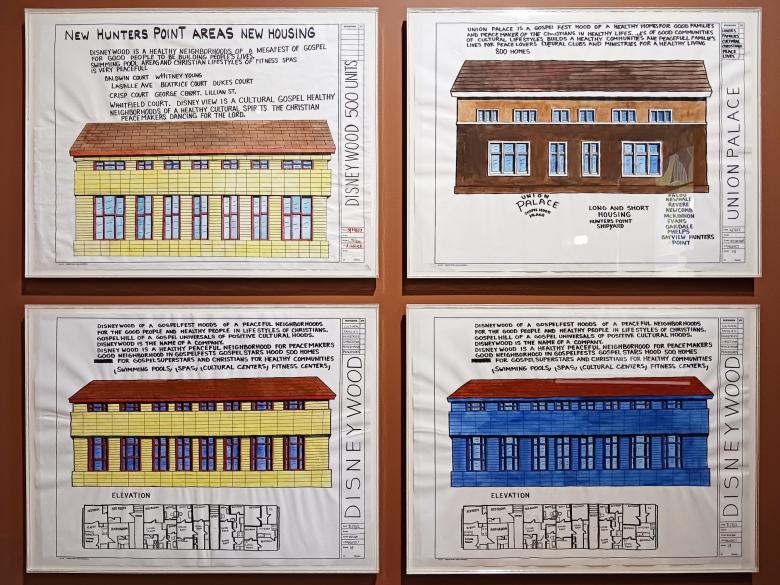 NEW HUNTERS POINT AREAS NEW HOUSING
DISNEYWOOD IS A HEALTHY NEIGHBORHOODS OF A MEGAFEST OF GOSPEL
FOR GOOD PEOPLE TO BE BUILDING PEOPLE'S LIVES
SWIMMING POOL AREAS AND CHRISTIAN LIFESTYLES OF FITNESS SPAS
IS VERY PEACEFUL
BALDWIN COURT WHITNEY YOUNG
LASALLE AVE BEATRICE COURT DUKES COURT
CRISP COURT GEORGE COURT, LILLIAN ST.
WHITFIELD COURT. DISNEY VIEW IS A CULTURAL GOSPEL HEALTHY
NEIGHBORHOODS OF A HEALTHY CULTURAL SPIP TS THE CHRISTIAN
PEACEMAKERS DANCING FOR THE LORD.
DISNEYWOOD 500 UNITS
UNION PALACE IS A GOSPEL FEST HOOD OF A HEALTHY HOMES FOR GOOD FAMILIES
AND PEACEMAKER OF THE CHRISTIANS IN HEALTHY LIFE OF GOOD COMMUNITIES
OF CULTURAL LIFESTYLES BUILDS A HEALTHY COMMUNITIES AND PEACEFULL FAMILIES
LINES FOR PEACE LOVERS CULTURAL CLUBS AND MINISTRIES FOR A HEALTHY LIVING
800 HOMES
UNION PALACE
UNION
PALACE
GOSPEL HOOD
PALACE
LONG AND SHORT
HOUSING
HUNTERS POINT
SHIPYARD
PALOU
NEWHALL
REVERE
NEWCOMB
MCKINNON
EVANS
OAKDALE
PHELPS
BAYVIEW HUNTERS
POINT
DISNEYWOOD OF A GOSPELFEST HOODS OF A PEACEFUL NEIGHBORHOODS
FOR THE GOOD PEOPLE AND HEALTHY PEOPLE IN LIFESTYLES OF CHRISTIANS.
GOSPEL HILL OF A GOSPEL UNIVERSALS OF POSITIVE CULTURAL HOODS.
DISNEYWOOD IS THE NAME OF A COMPANY.
DISNEY WOOD IS A HEALTHY PEACEFUL NEIGHBORHOOD FOR PEACEMAKERS
GOOD NEIGHBORHOOD IN GOSPELFESTS GOSPEL STARS HOOD 500 HOMES
FOR GOSPEL SUPERSTARS AND CHRISTIANS FOR HEALTHY COMMUNITIES
(SWIMMING POOLS) (SPAS) (CULTURAL CENTERS) FITNESS CENTERS)
ELEVATION
DISNEYWOOD
DISNEYWOOD OF A GOSPELFEST HOODS OF A PEACEFUL NEIGHBORHOODS
FOR THE GOOD PEOPLE AND HEALTHY PEOPLE IN LIFESTYLES OF CHRISTIANS.
GOSPEL HILL OF A GOSPEL UNIVERSALS OF POSITIVE CULTURAL HOODS.
DISNEYWOOD IS THE NAME OF A COMPANY.
DISNEYWOOD IS A HEALTHY PEACEFUL NEIGHBORHOOD FOR PEACEMAKERS
GOOD NEIGHBORHOOD IN GOSPELFESTS GOSPEL STARS HOOD 500 HOMES
FOR GOSPELSUPERSTARS AND CHRISTIANS FOR HEALTHY COMMUNITIES
(SWIMMING POOLS) (SPAS) (CULTURAL CENTERS) (FITNESS CENTERS)
ELEVATION
DISNEYWOOD